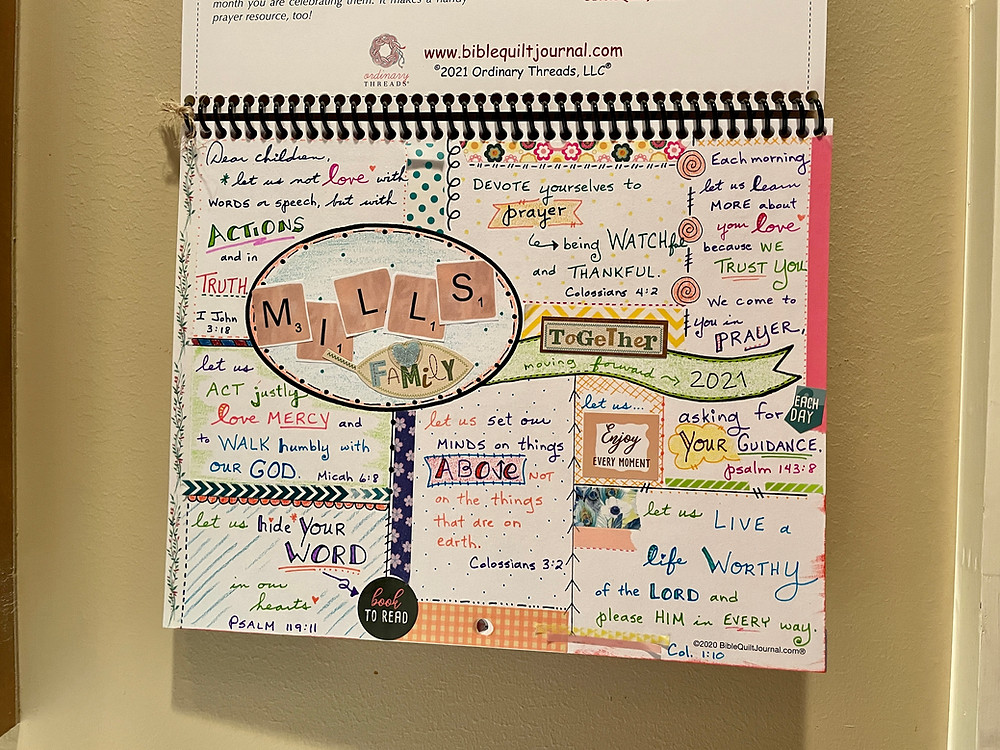 month you are celebrating them. It makes a handy
prayer resource, too!
ordinary
THREADS®
www.biblequiltjournal.com
©2021 Ordinary Threads, LLC®
Dear children,
*let us not love with
WORDS or speech, but with
ACTIONS
and in
TRUTH
I John
3:18
DEVOTE yourselves to
prayer
being WATCHful
and THANKFUL.
Colossians 4:2
Each morning
let us learn
MORE about
your love
because WE
TRUST YOU
We come to
you in
PRAYER,
asking for
YOUR GUIDANCE.
psalm 143:8
EACH
DAY
M3 I1 L L1 S1
FAMiLY
ToGeTher
moving forward → 2021
let us
ACT justly
love MERCY and
to WALK humbly with
our GOD. Micah 6:8
let us set our
MINDS on things
ABOVE NOT
on the things
that are on
earth.
Colossians 3:2
let us...
Enjoy
EVERY MOMENT
let us hide *YOUR
WORD
in our
hearts
PSALM 119:11
book
TO READ
let us LIVE a
life WORTHY
of the LORD and
please HIM in EVERY way.
©2020 BibleQuiltJournal.com®
Col. 1:10